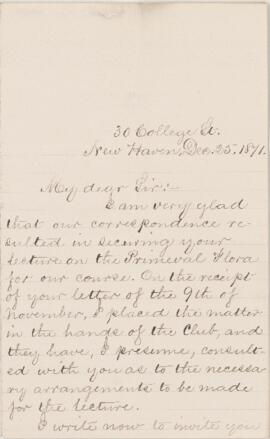 30 College St.
New Haven, Dec. 25. 1871.
My dear Sir:-
I am very glad
that our correspondence re-
sulted in securing your
lecture on the Primeval Flora
for our course. On the receipt
of your letter of the 9th of
November, I placed the matter
in the hands of the Club, and
they have, I presume, consult-
ed with you as to the necessa-
ry arrangements to be made
for the lecture.
I write now to invite you